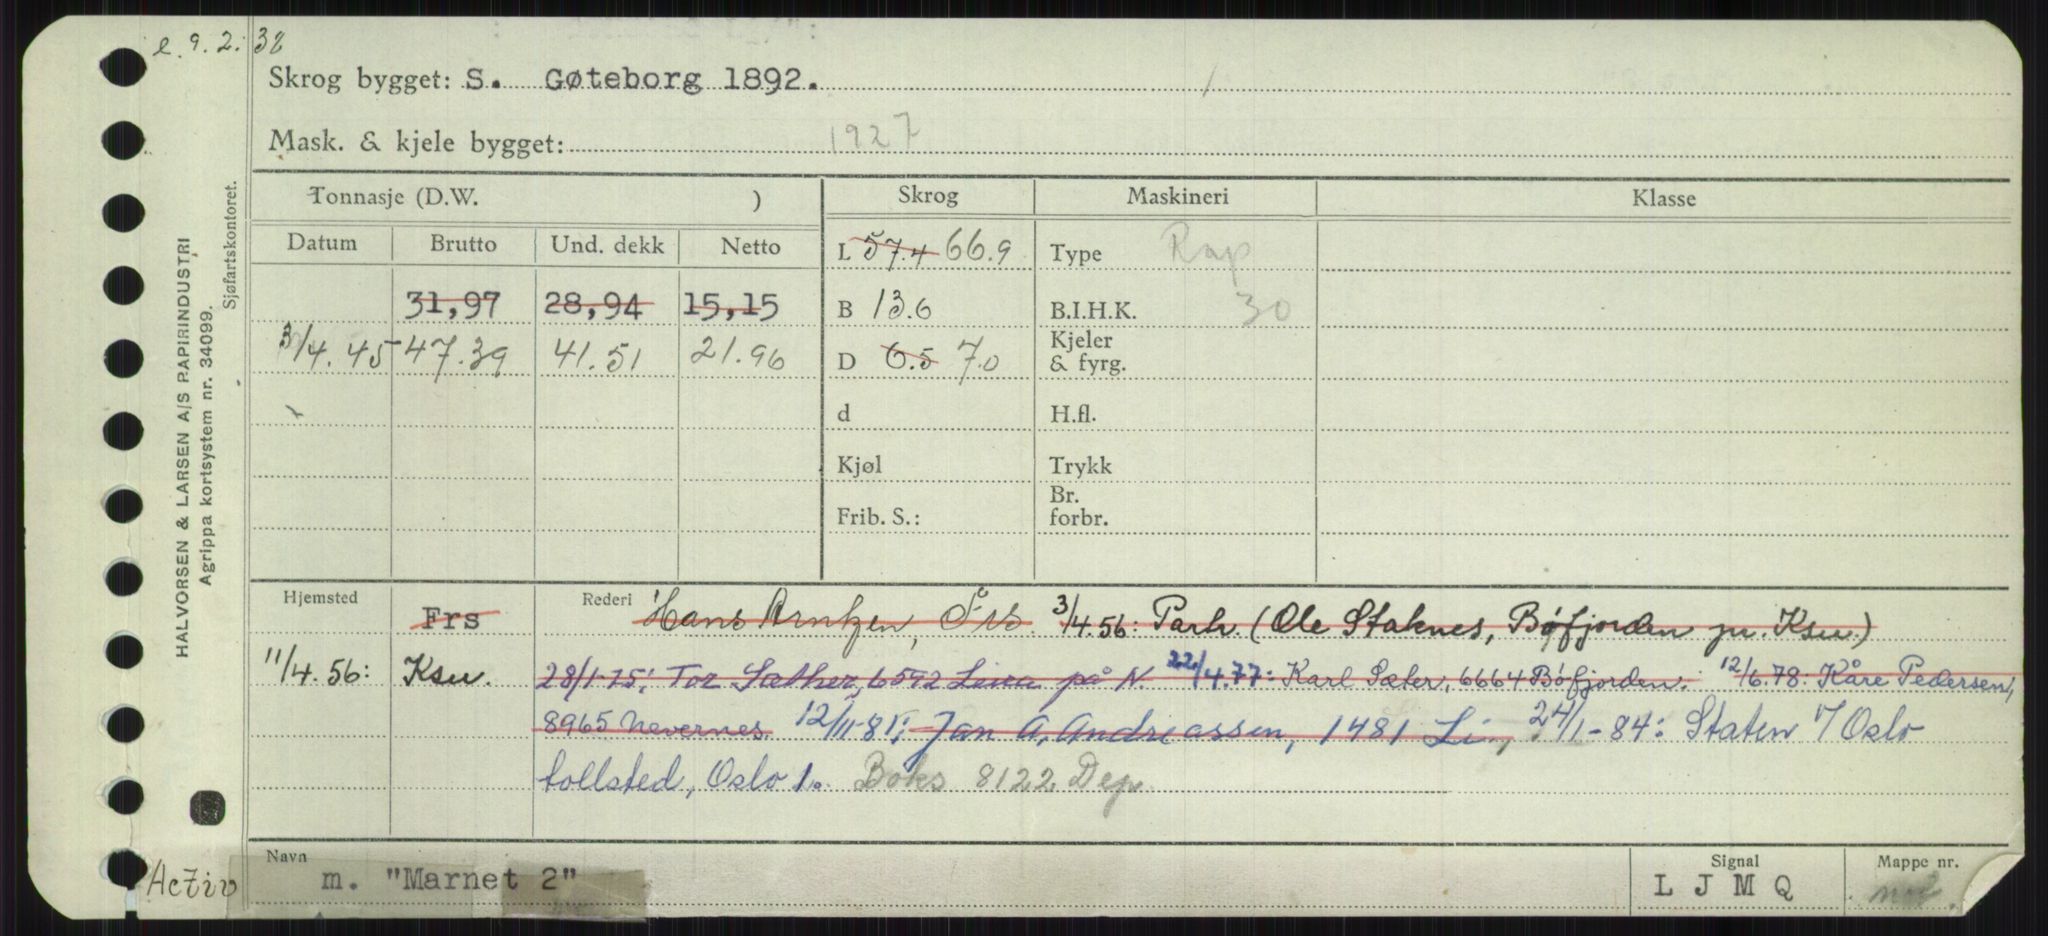 e 9.2.38
Skrog bygget: S. Gøteborg 1892.
Mask. & kjele bygget: 1927
Tonnasje (D.W. ) Skrog Maskineri Klasse
Datum Brutto Und. dekk Netto L 57.4 66.9 Type Rap
31,97 28,94 15,15 B 13.6 B.I.H.K. 30
3/4.45 47.39 41.51 21.96 D 6.5 7.0 Kjeler & fyrg.
d H.fl.
Kjøl Trykk
Frib. S.: Br. forbr.
Hjemsted Frs Rederi Hans Arntzen, 3/4.56: Parh. (Ole Staknes, Bøfjorden pr. Ksu.)
11/4.56: Ksu. 28/1-75: Tor Sæther, 6592 Leira på N. 22/4.77: Karl Sæter, 6664 Bøfjorden. 12/6.78: Kåre Pedersen,
8965 Nevernes. 12/11-81: Jan A. Andreassen, 1481 Li 24/1-84: Staten v/ Oslo
tollsted, Oslo 1. Boks 8122 Dep.
Navn m. "Marnet 2" Signal L J M Q Mappe nr.
Activ
HALVORSEN & LARSEN A/S PAPIRINDUSTRI
Agrippa kortsystem nr. 34099.
Sjøfartskontoret.